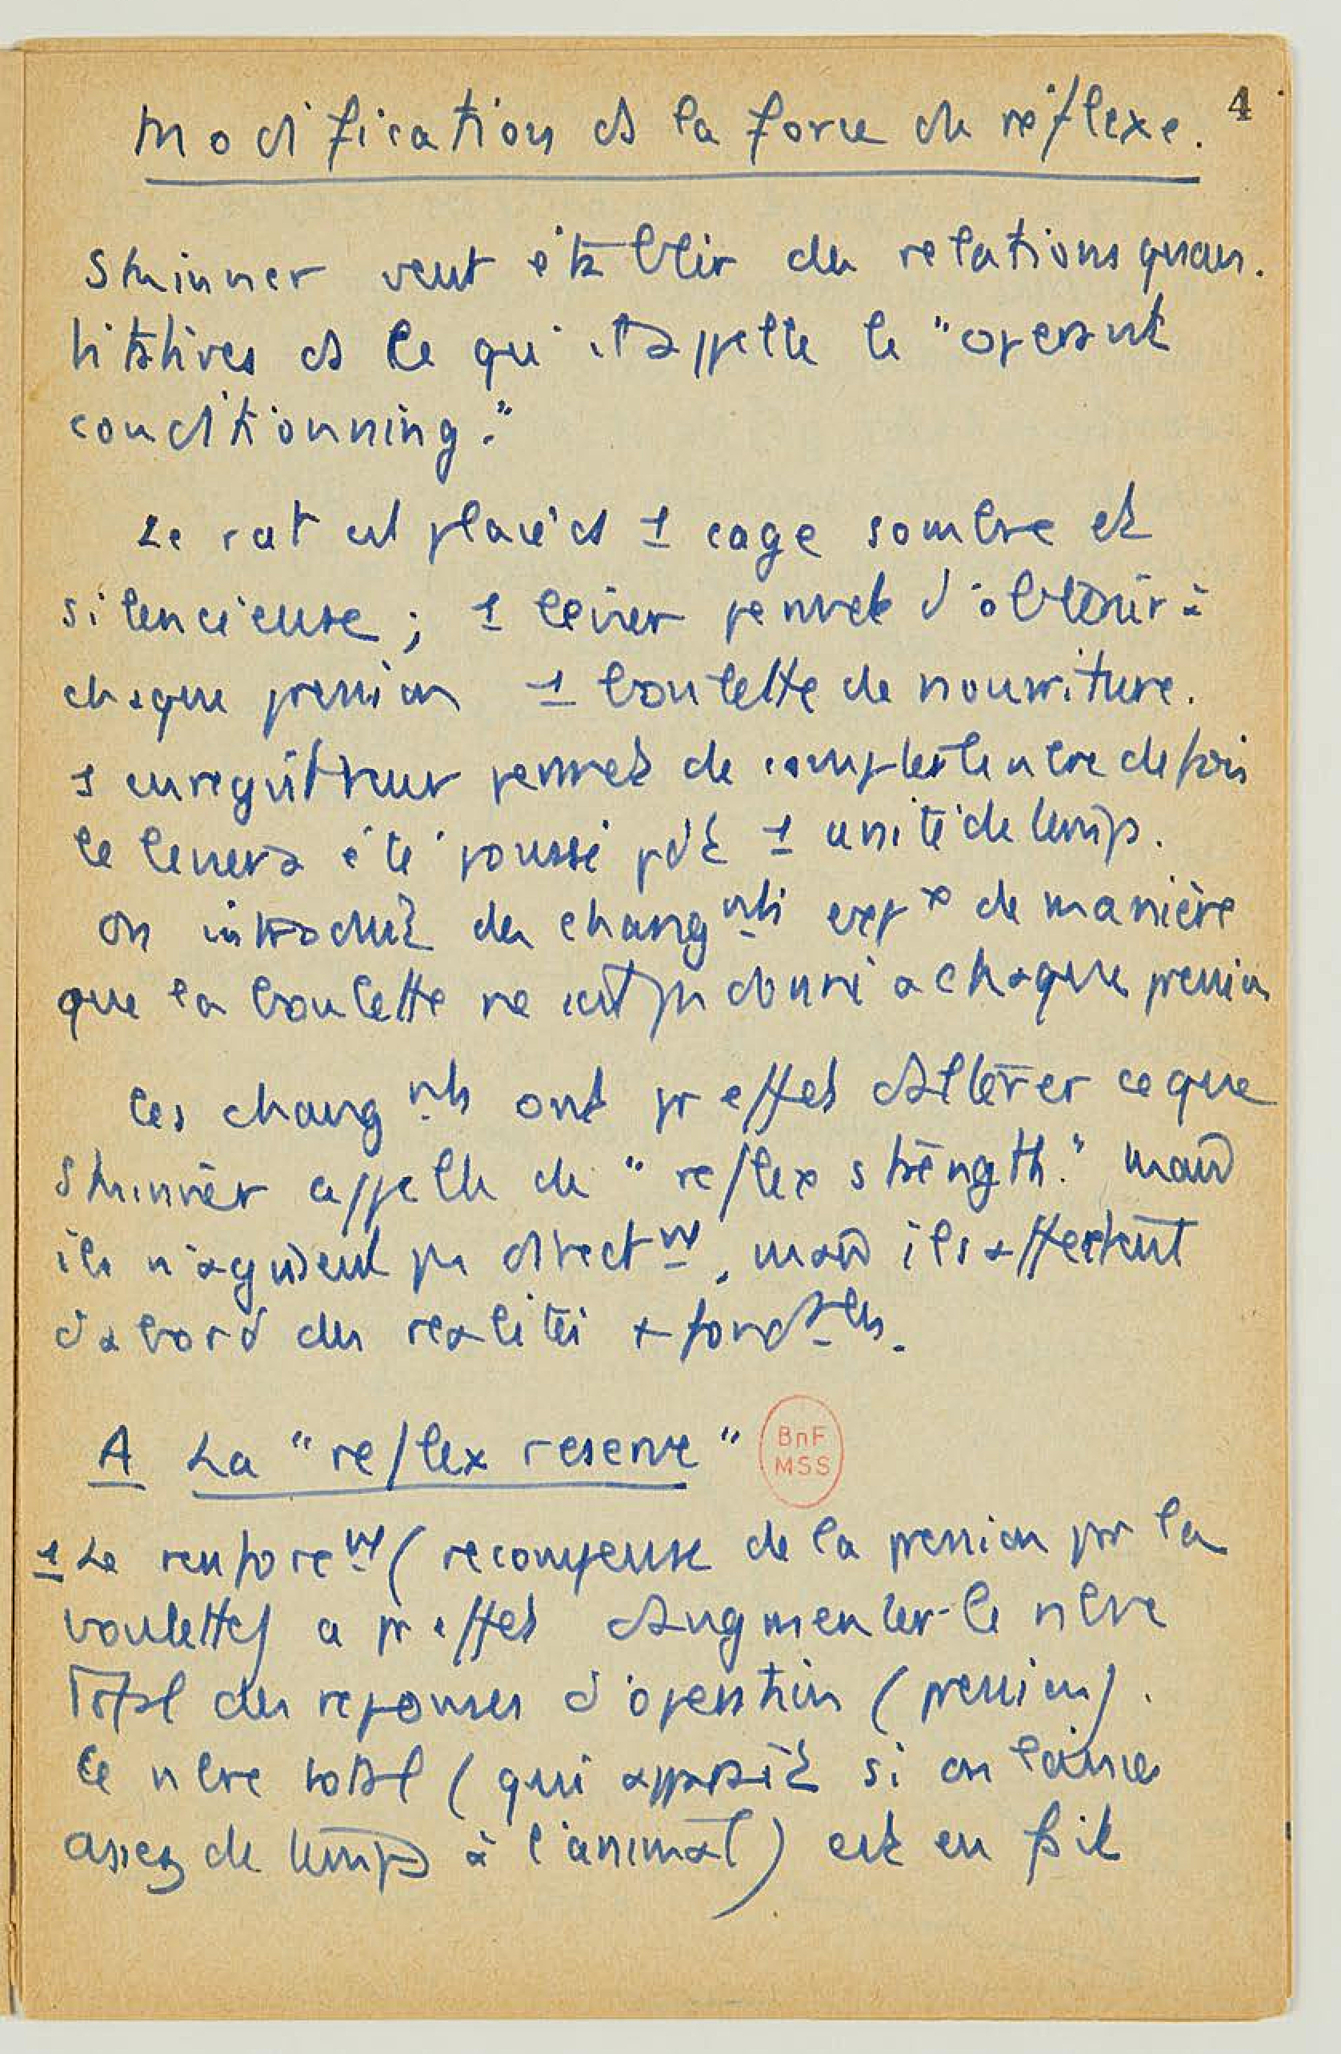 4
Modification ds la force du réflexe.
Skinner veut établir des relations quan-
titatives ds ce qu'il appelle le "operant
conditionning."
Le rat est placé ds 1 cage sombre et
silencieuse ; 1 levier permet d'obtenir à
chaque pression 1 boulette de nourriture.
1 enregistreur permet de compter le nbre de fois
le levier a été poussé pdt 1 unité de temps.
On introduit des changnts de manière
que la boulette ne soit pas donné a chaque pression
Ces changnts ont pr effet d'altérer ce que
Skinner appelle de "reflex strength." mais
ils n'agissent pas directnt, mais ils affectent
d'abord des realités + fondtales.
A La "reflex reserve"
BnF
MSS
1 Le renforcent (recompense de la pression par la
boulette) a pr effet d'augmenter le nbre
total des reponses d'operation (pression).
Ce nbre total (qui apparait si on laisse
assez de temps à l'animal) est en fait